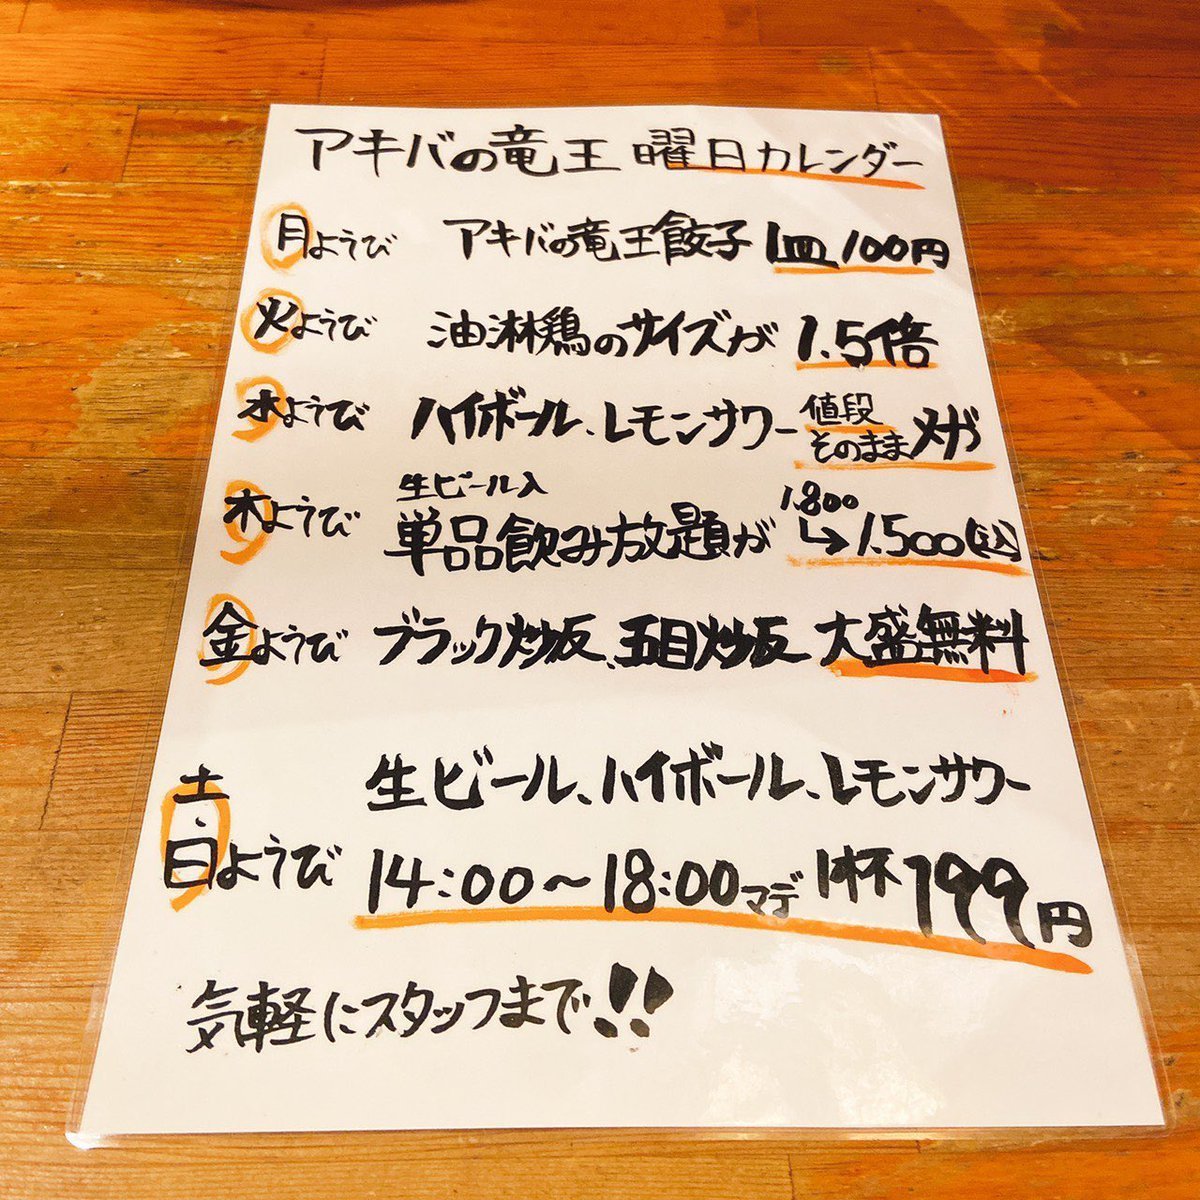 アキバの竜王 曜日カレンダー
月ようび アキバの竜王餃子 1皿100円
火ようび 油淋鶏のサイズが 1.5倍
水ようび ハイボール、レモンサワー 値段そのままメガ
生ビール入
木ようび 単品飲み放題が 1.800→1.500(税込)
金ようび ブラック炒飯、五目炒飯 大盛無料
土、 生ビール、ハイボール、レモンサワー
日ようび 14:00～18:00マデ 1杯199円
気軽にスタッフまで!!